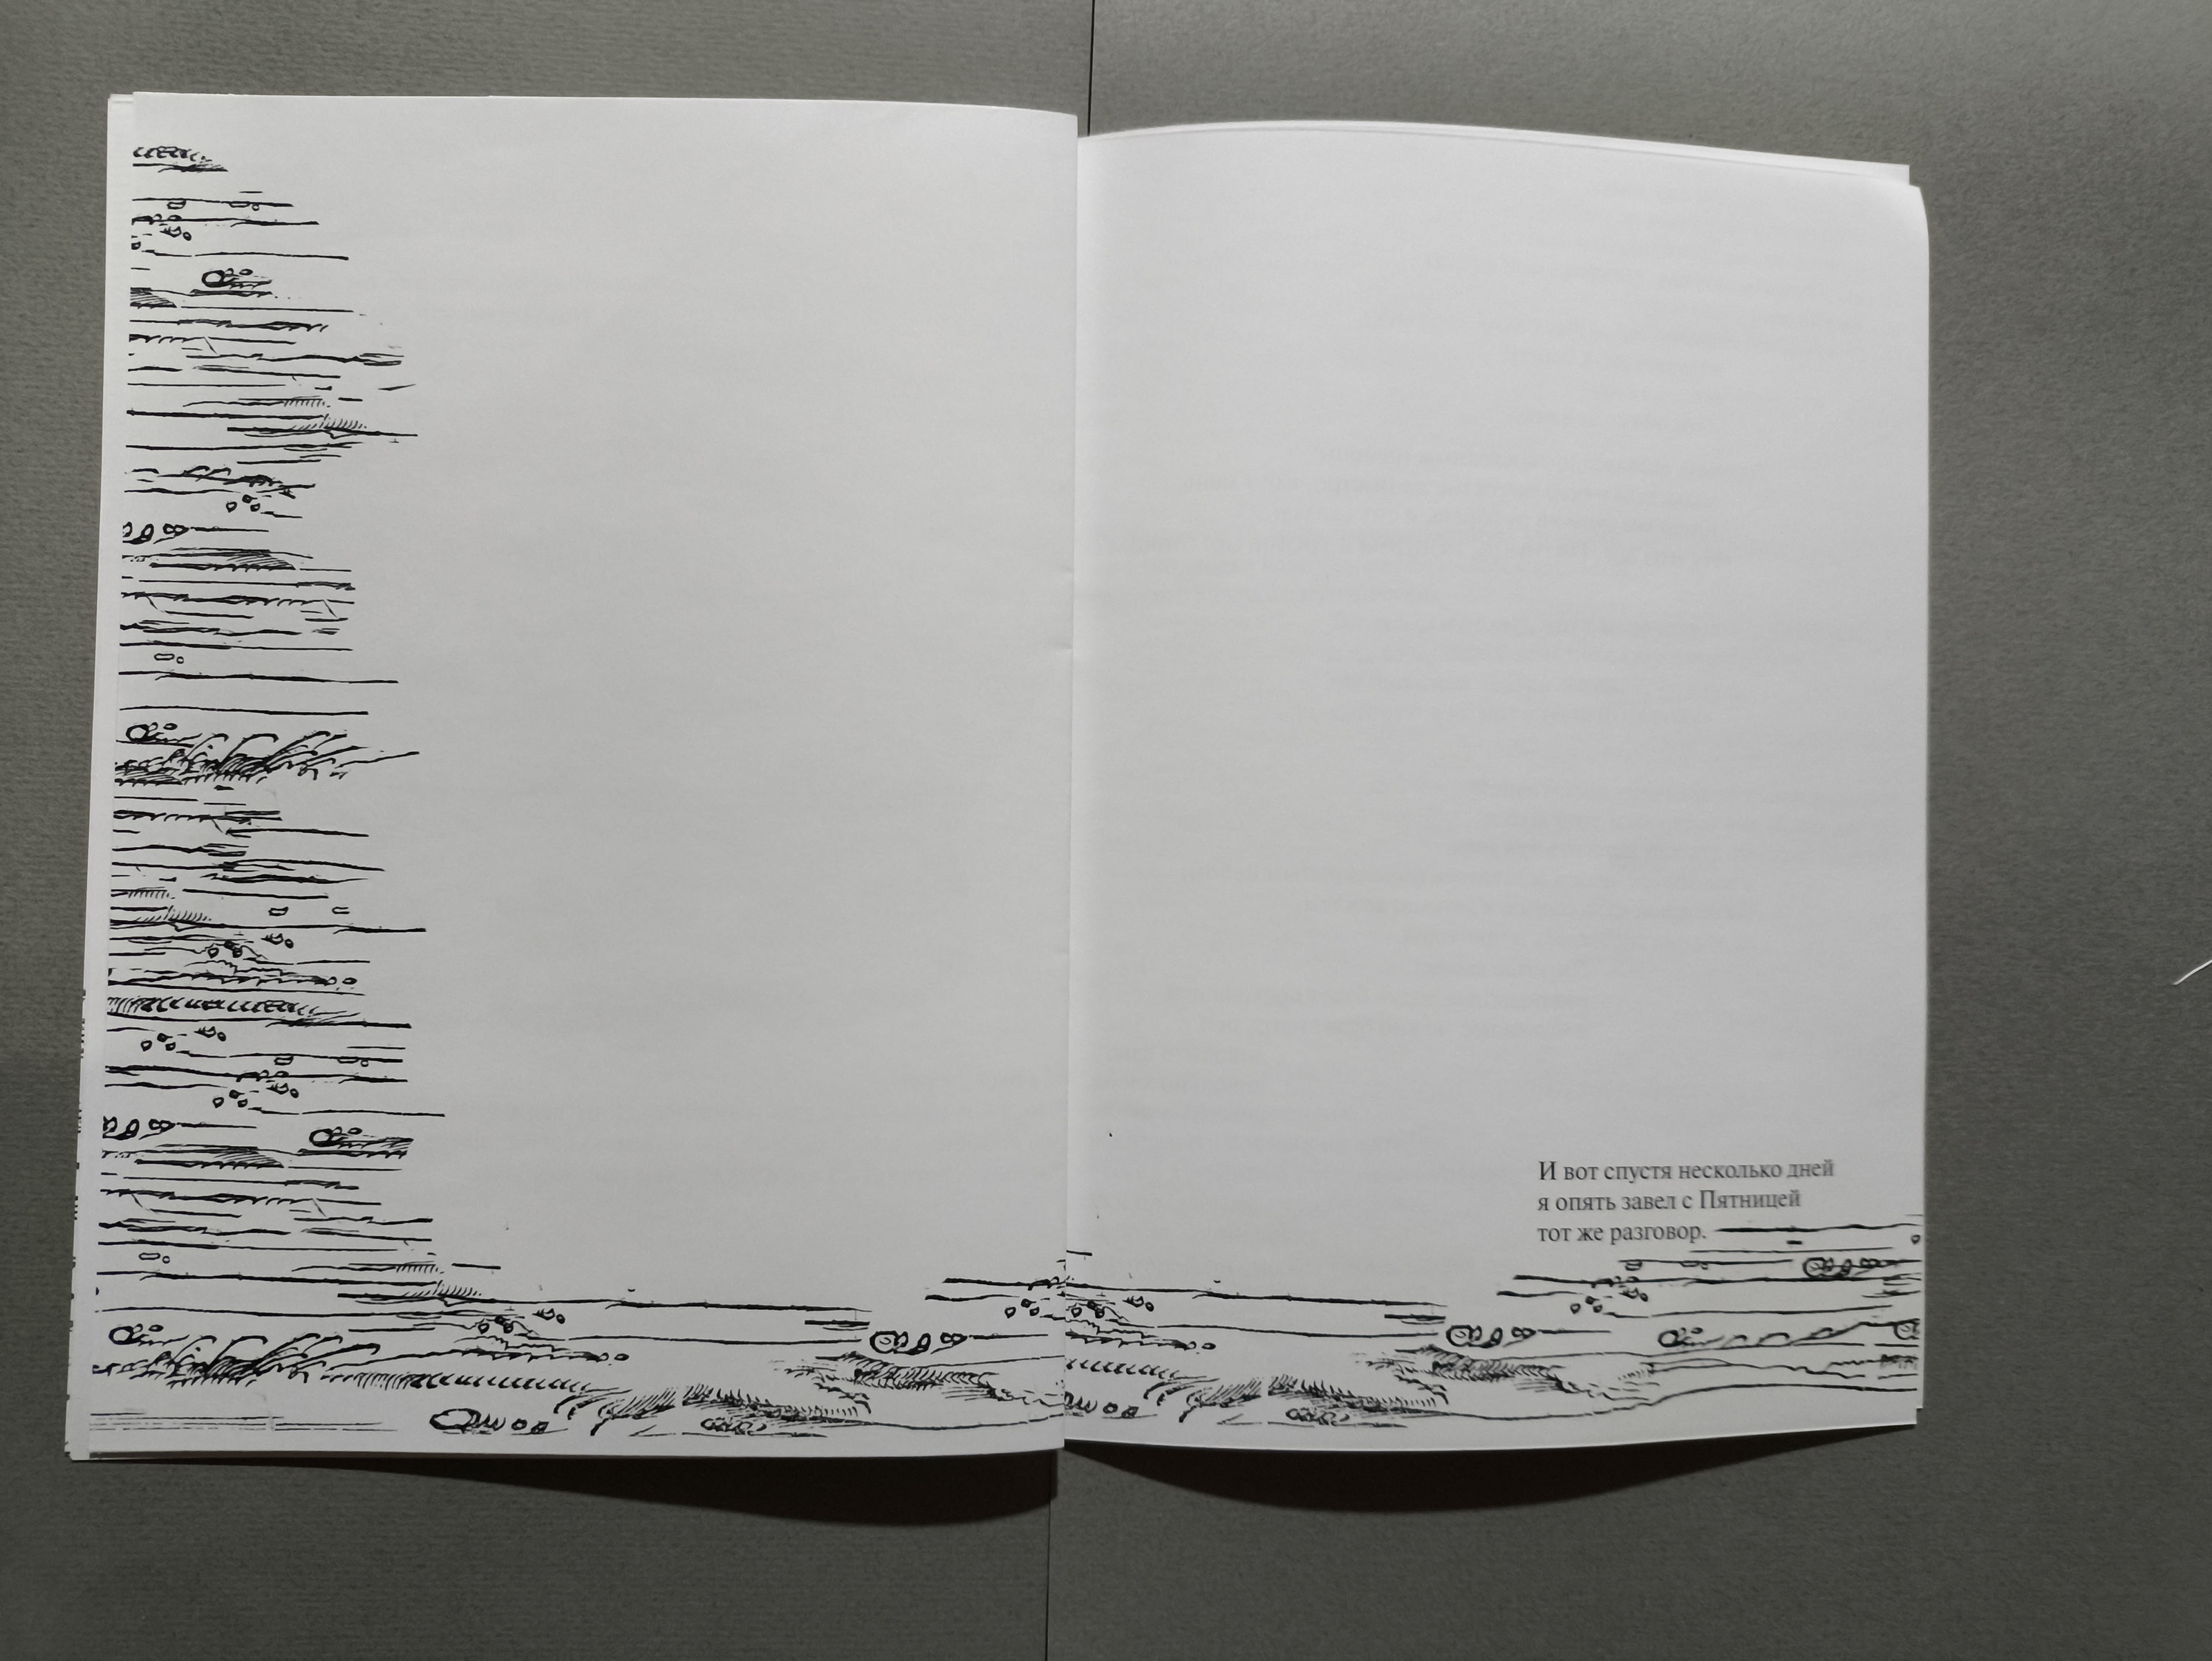 И вот спустя несколько дней
я опять завел с Пятницей
тот же разговор.